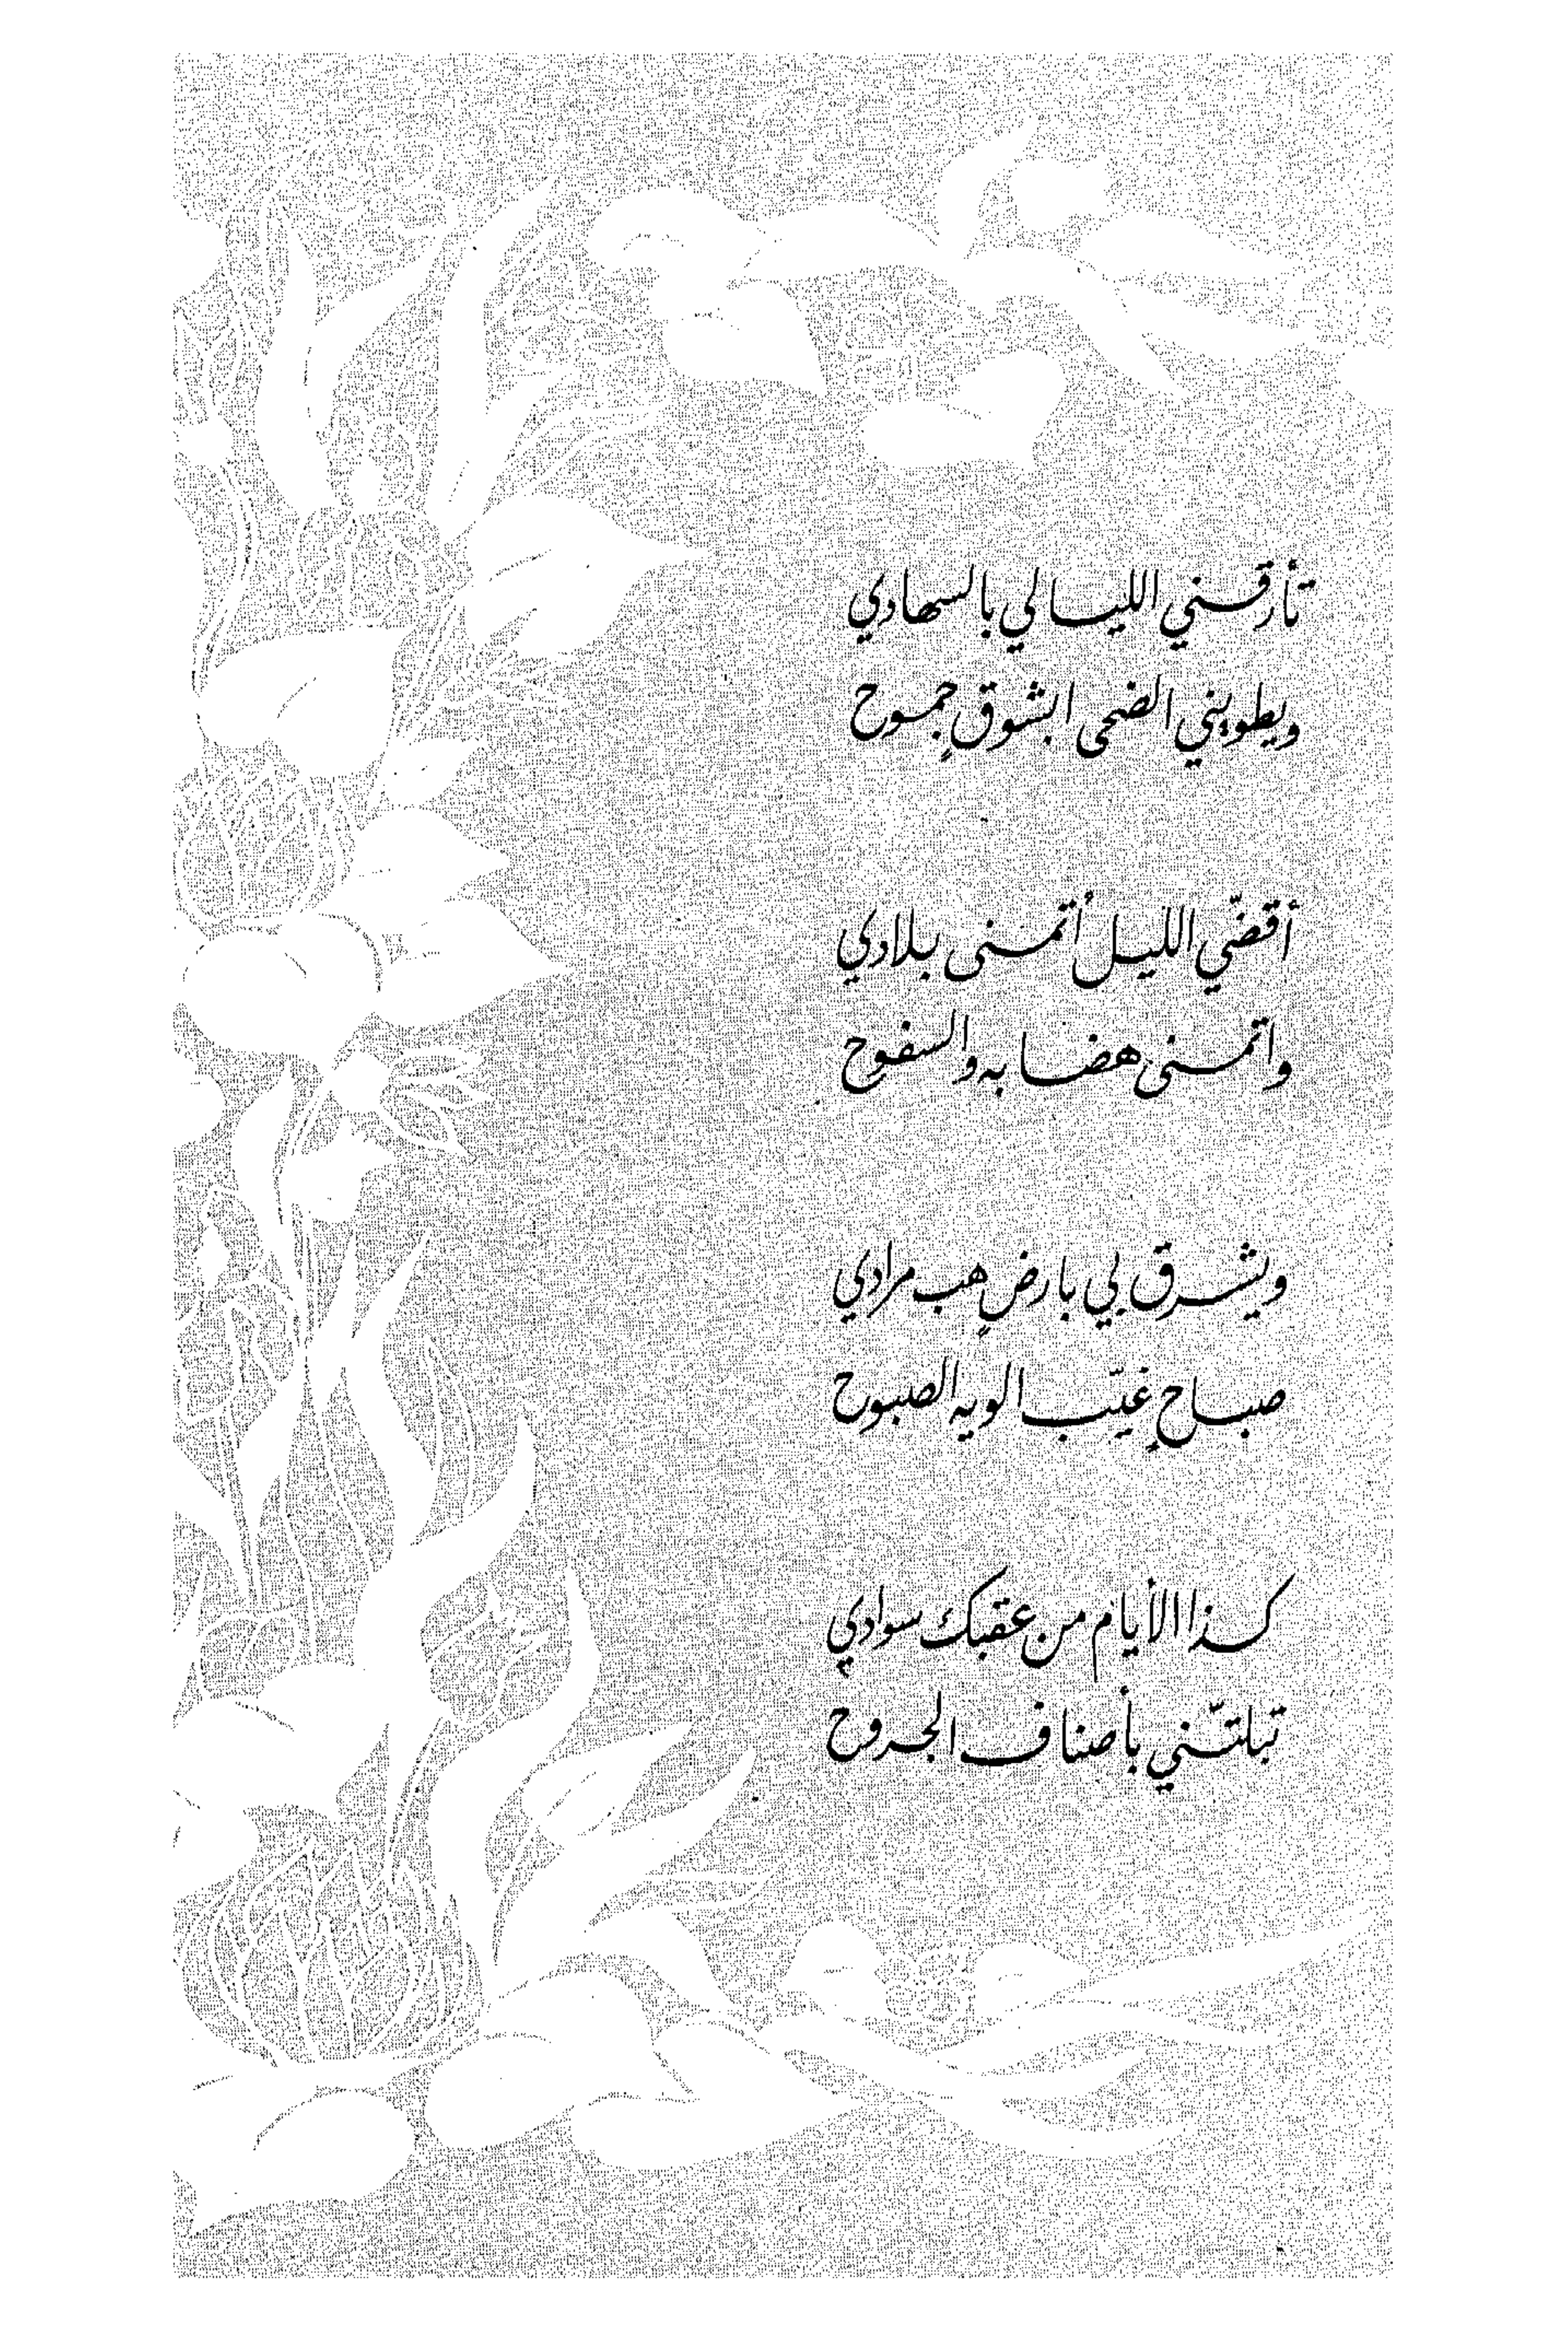 تأرقني الليالي بالسهادي
ويطويني الضحى ابشوقٍ جموح
أقضّي الليل أتمنى بلادي
واتمنى هضابه والسفوح
ويشرق بي بارضٍ هب مرادي
صباحٍ غيّب الويه الصبوح
كذا الأيام من عقبك سوادي
تبلتّني بأصناف الجروح